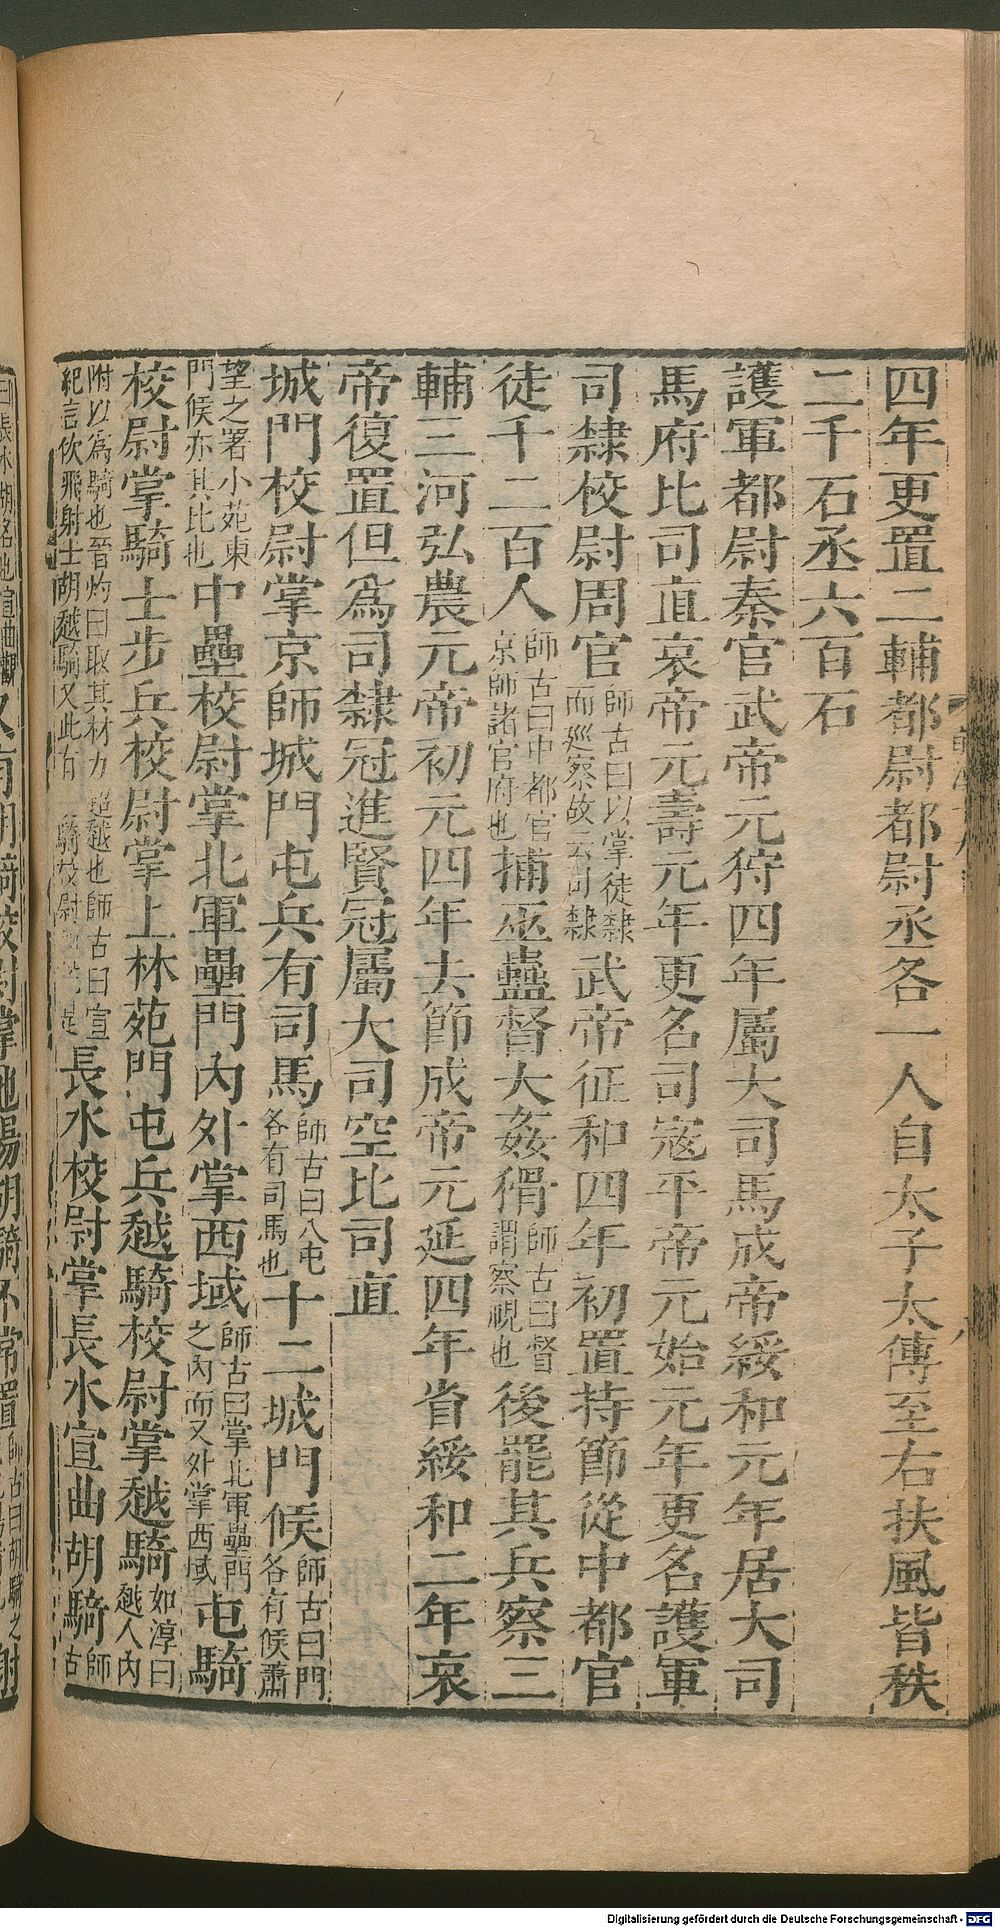 四年更置二輔都尉都尉丞各一人自太子太傅至右扶風皆秩
二千石丞六百石
護軍都尉秦官武帝元狩四年屬大司馬成帝綏和元年居大司
馬府比司直哀帝元壽元年更名司寇平帝元始元年更名護軍
司隸校尉周官師古曰以掌徒隸而巡察故云司隸武帝征和四年初置持節從中都官
徒千二百人師古曰中都官京師諸官府也捕巫蠱督大姦猾師古曰督謂察視也後罷其兵察三
輔三河弘農元帝初元四年去節成帝元延四年省綏和二年哀
帝復置但爲司隸冠進賢冠屬大司空比司直
城門校尉掌京師城門屯兵有司馬師古曰八屯各有司馬也十二城門候師古曰門各有候蕭
望之署小苑東門候亦其比也中壘校尉掌北軍壘門內外掌西域師古曰掌北軍壘門之內而又外掌西域屯騎
校尉掌騎士步兵校尉掌上林苑門屯兵越騎校尉掌越騎如淳曰越人內
附以爲騎也晉灼曰取其材力超越也師古曰宣紀言佽飛射士胡越騎又此有騎校尉是長水校尉掌長水宣曲胡騎師古
又有胡騎校尉掌池陽胡騎不常置師古曰胡騎之
Digitalisierung gefördert durch die Deutsche Forschungsgemeinschaft - DFG